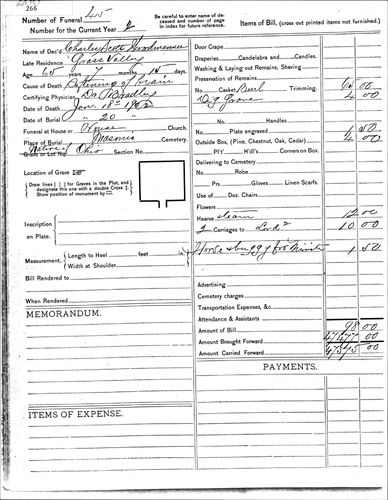 266
Number of Funeral 45
Number for the Current Year 2
Be careful to enter name of de-
ceased and number of page
in index for future reference.
Items of Bill, (cross out printed items not furnished.)
Name of Dec'd Charles Scott
Late Residence Grass Valley
Age 65 years months 15 days
Cause of Death Softening of Brain
Certifying Physician Dr.
Date of Death Jan. 18th
Date of Burial " 20 "
Funeral at House or House Church.
Place of Burial Masonic Cemetery.
Grave or Lot No. Section No.
Native of Ohio
Location of Grave
Draw lines [ ] for Graves in the Plot, and
designate this one with a double Cross
Show position of monument by
Inscription
on Plate.
Measurement. Length to Heel feet
Width at Shoulder
Bill Rendered to
When Rendered
MEMORANDUM.
ITEMS OF EXPENSE.
Door Crape
Draperies Candelabra and Candles.
Washing & Laying out Remains, Shaving
Preservation of Remains
No. Casket Burl Trimming. 00
Grave 4 00
No. Handles
Plate engraved
Outside Box, (Pine, Chestnut, Oak, Cedar) 4 00
Pl't' H'd'l's Corners on Box.
Delivering to Cemetery
No. Robe
Pn. Gloves Linen Scarfs.
Use of Doz. Chairs
Flowers
Hearse 12 00
2 Carriages to 10 00
Horse & buggy for Minister 1 50
Advertising
Cemetery charges
Transportation Expenses, &c
Attendance & Assistants
Amount of Bill 98 00
Amount Brought Forward
Amount Carried Forward
PAYMENTS.